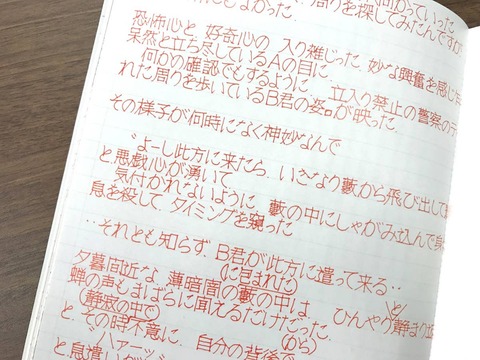 向かっていった
もよかった. 周りを探してみたんですが
恐怖心と 好奇心の 入り雑じった 妙な興奮を感じ
呆然と立ち尽しているAの目に、 立入り禁止の警察の
何かの確認でもするように、
れた周りを歩いているB君の姿が映った.
その様子が何時になく神妙なんで
“よーし此方に来たら、いきなり藪から飛び出して
と悪戯心が湧いて、
気付かれないように、藪の中にしゃがみ込んで身
息を殺して、タイミングを窺った
‥それとも知らず、B君が此方に遣って来る‥
(に包まれた) と
夕暮間近な、薄暗闇の藪の中は、 ひんやり静まり
蝉の声もまばらに聞えるだけだった.
(静寂の中で) (から)
と、その時不意に、自分の背後で
“ハァーッ
と息遣いが